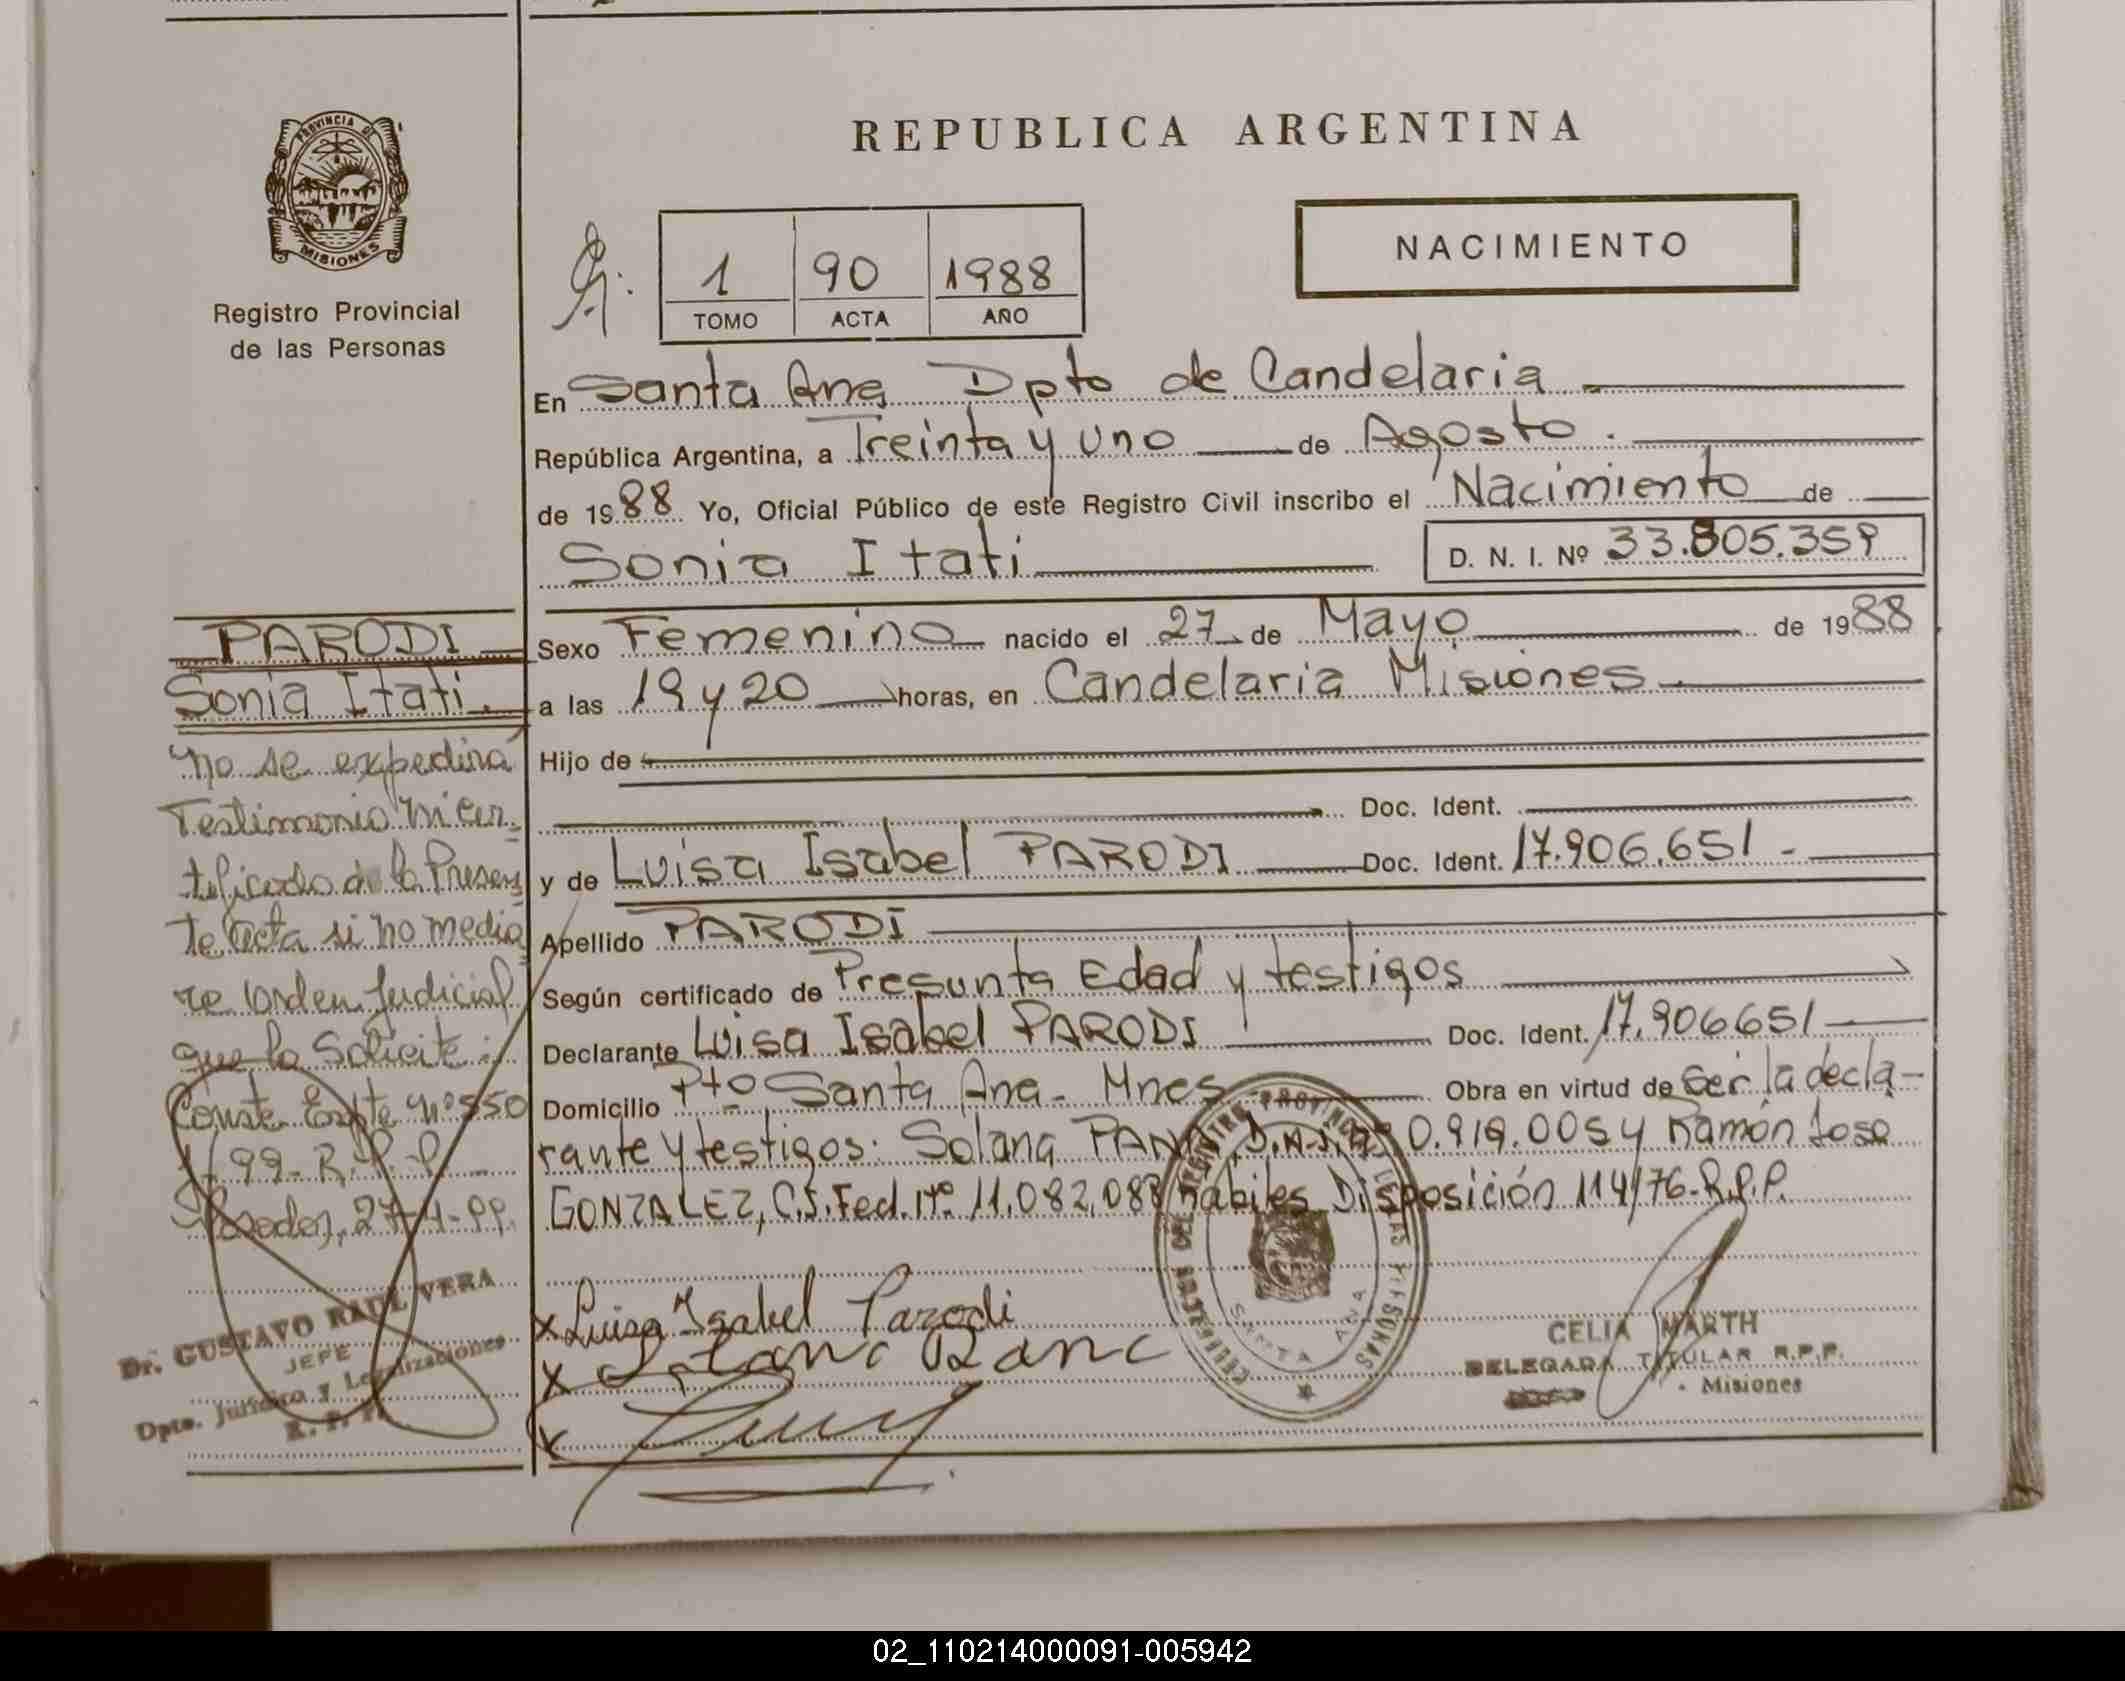 PROVINCIA DE
MISIONES
Registro Provincial
de las Personas
REPUBLICA ARGENTINA
NACIMIENTO
1 90 1988
TOMO ACTA AÑO
En Santa Ana Dpto de Candelaria
República Argentina, a Treinta y uno de Agosto.
de 1988 Yo, Oficial Público de este Registro Civil inscribo el Nacimiento de
Sonia Itati
D. N. I. Nº 33.805.359
Sexo Femenino nacido el 27 de Mayo de 1988
a las 19 y 20 horas, en Candelaria Misiones
Hijo de
Doc. Ident.
y de Luisa Isabel PARODI Doc. Ident. 17.906.651-
Apellido PARODI
Según certificado de Presunta Edad y testigos
Declarante Luisa Isabel PARODI Doc. Ident. 17.906651
Domicilio Pto Santa Ana - Mnes Obra en virtud de ser la decla-
rante y testigos: Solana D.N.I. 0.919.005 y Ramón Jose
GONZALEZ, C.I. Fed. Nº 11.082.088 habiles Disposición 114/76-R.P.P.
x Luisa Isabel Parodi
x
x
SANTA ANA
CELIA MARTH
DELEGADA TITULAR R.P.P.
Misiones
PARODI
Sonia Itati.
No se expedira
Testimonio ni cer-
tificado de la Presen
te acta si no media
re orden Judicial
que lo Solicite.
Conste Expte Nº 550
/99-R.P.P.
Posadas, 27-4-99.
Dr. GUSTAVO RAUL VERA
JEFE
Dpto. Jurídico y Legalizaciones
R. P. P.
02_110214000091-005942